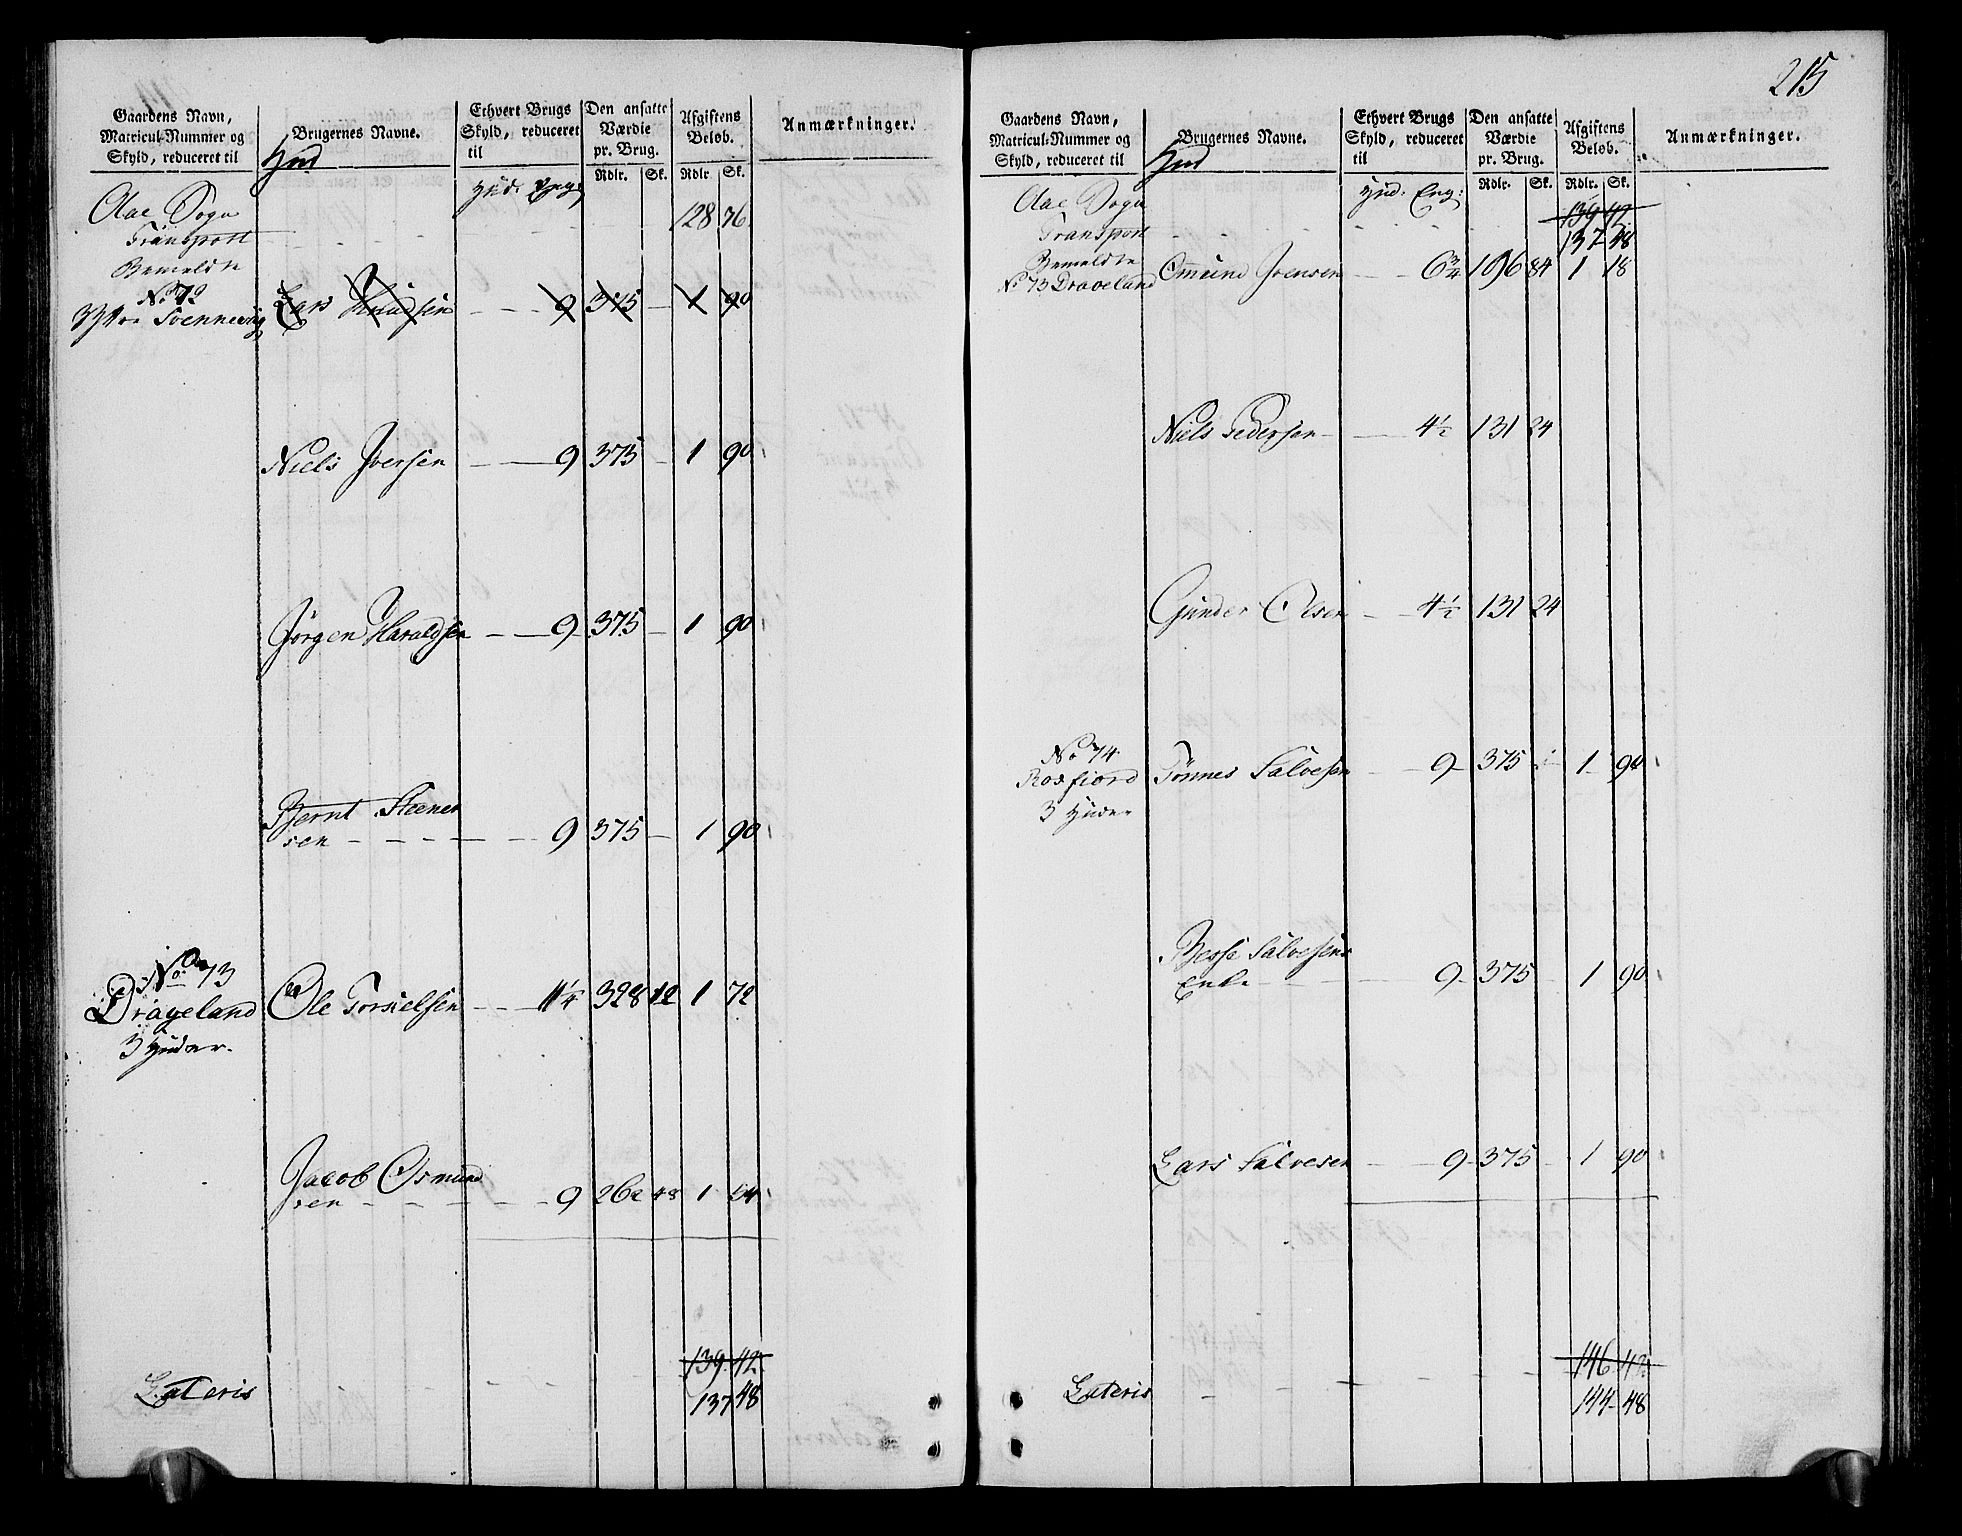 Gaardens Navn, Matricul-Nummer og Skyld, reduceret til Hud
Brugernes Navne.
Ethvert Brugs Skyld, reduceret til
Den ansatte Værdie pr. Brug.
Afgiftens Beløb.
Anmærkninger.
Hud. Eng: Rdlr. Sk. Rdlr. Sk.
Aae Sogn
Transport - - - 128 76
Bemeldte
No 72 Lars Knudsen - - 9 375 - 1 90
Svennevig
Niels Iversen - - 9 375 - 1 90
Jørgen Haraldsen - - 9 375 - 1 90
Bernt Steener
sen - - - - 9 375 - 1 90
No 73
Drageland Ole Torkielsen - - 11¼ 328 12 1 72
3 Huder.
Jacob Osmund
sen - - - - 9 262 48 1 64
139 42
Lateris - - - 137 48
215
Gaardens Navn, Matricul-Nummer og Skyld, reduceret til Hud
Brugernes Navne.
Ethvert Brugs Skyld, reduceret til
Den ansatte Værdie pr. Brug.
Afgiftens Beløb.
Anmærkninger.
Hud. Eng: Rdlr. Sk. Rdlr. Sk.
Aae Sogn 139 42
Transport - - - 137 48
Bemeldte
No 73 Drageland Omund Ivensen - - 6¾ 196 84 1 18
Niels Pedersen - - 4½ 131 24
Gunder Olsen - - 4½ 131 24
No 74
Rosfiord Tønnes Salvesen - 9 375 - 1 90
3 Huder
Besse Salvesens
Enke - - - 9 375 - 1 90
Lars Salvesen - - 9 375 - 1 90
146 42
Lateris - - - 144 48